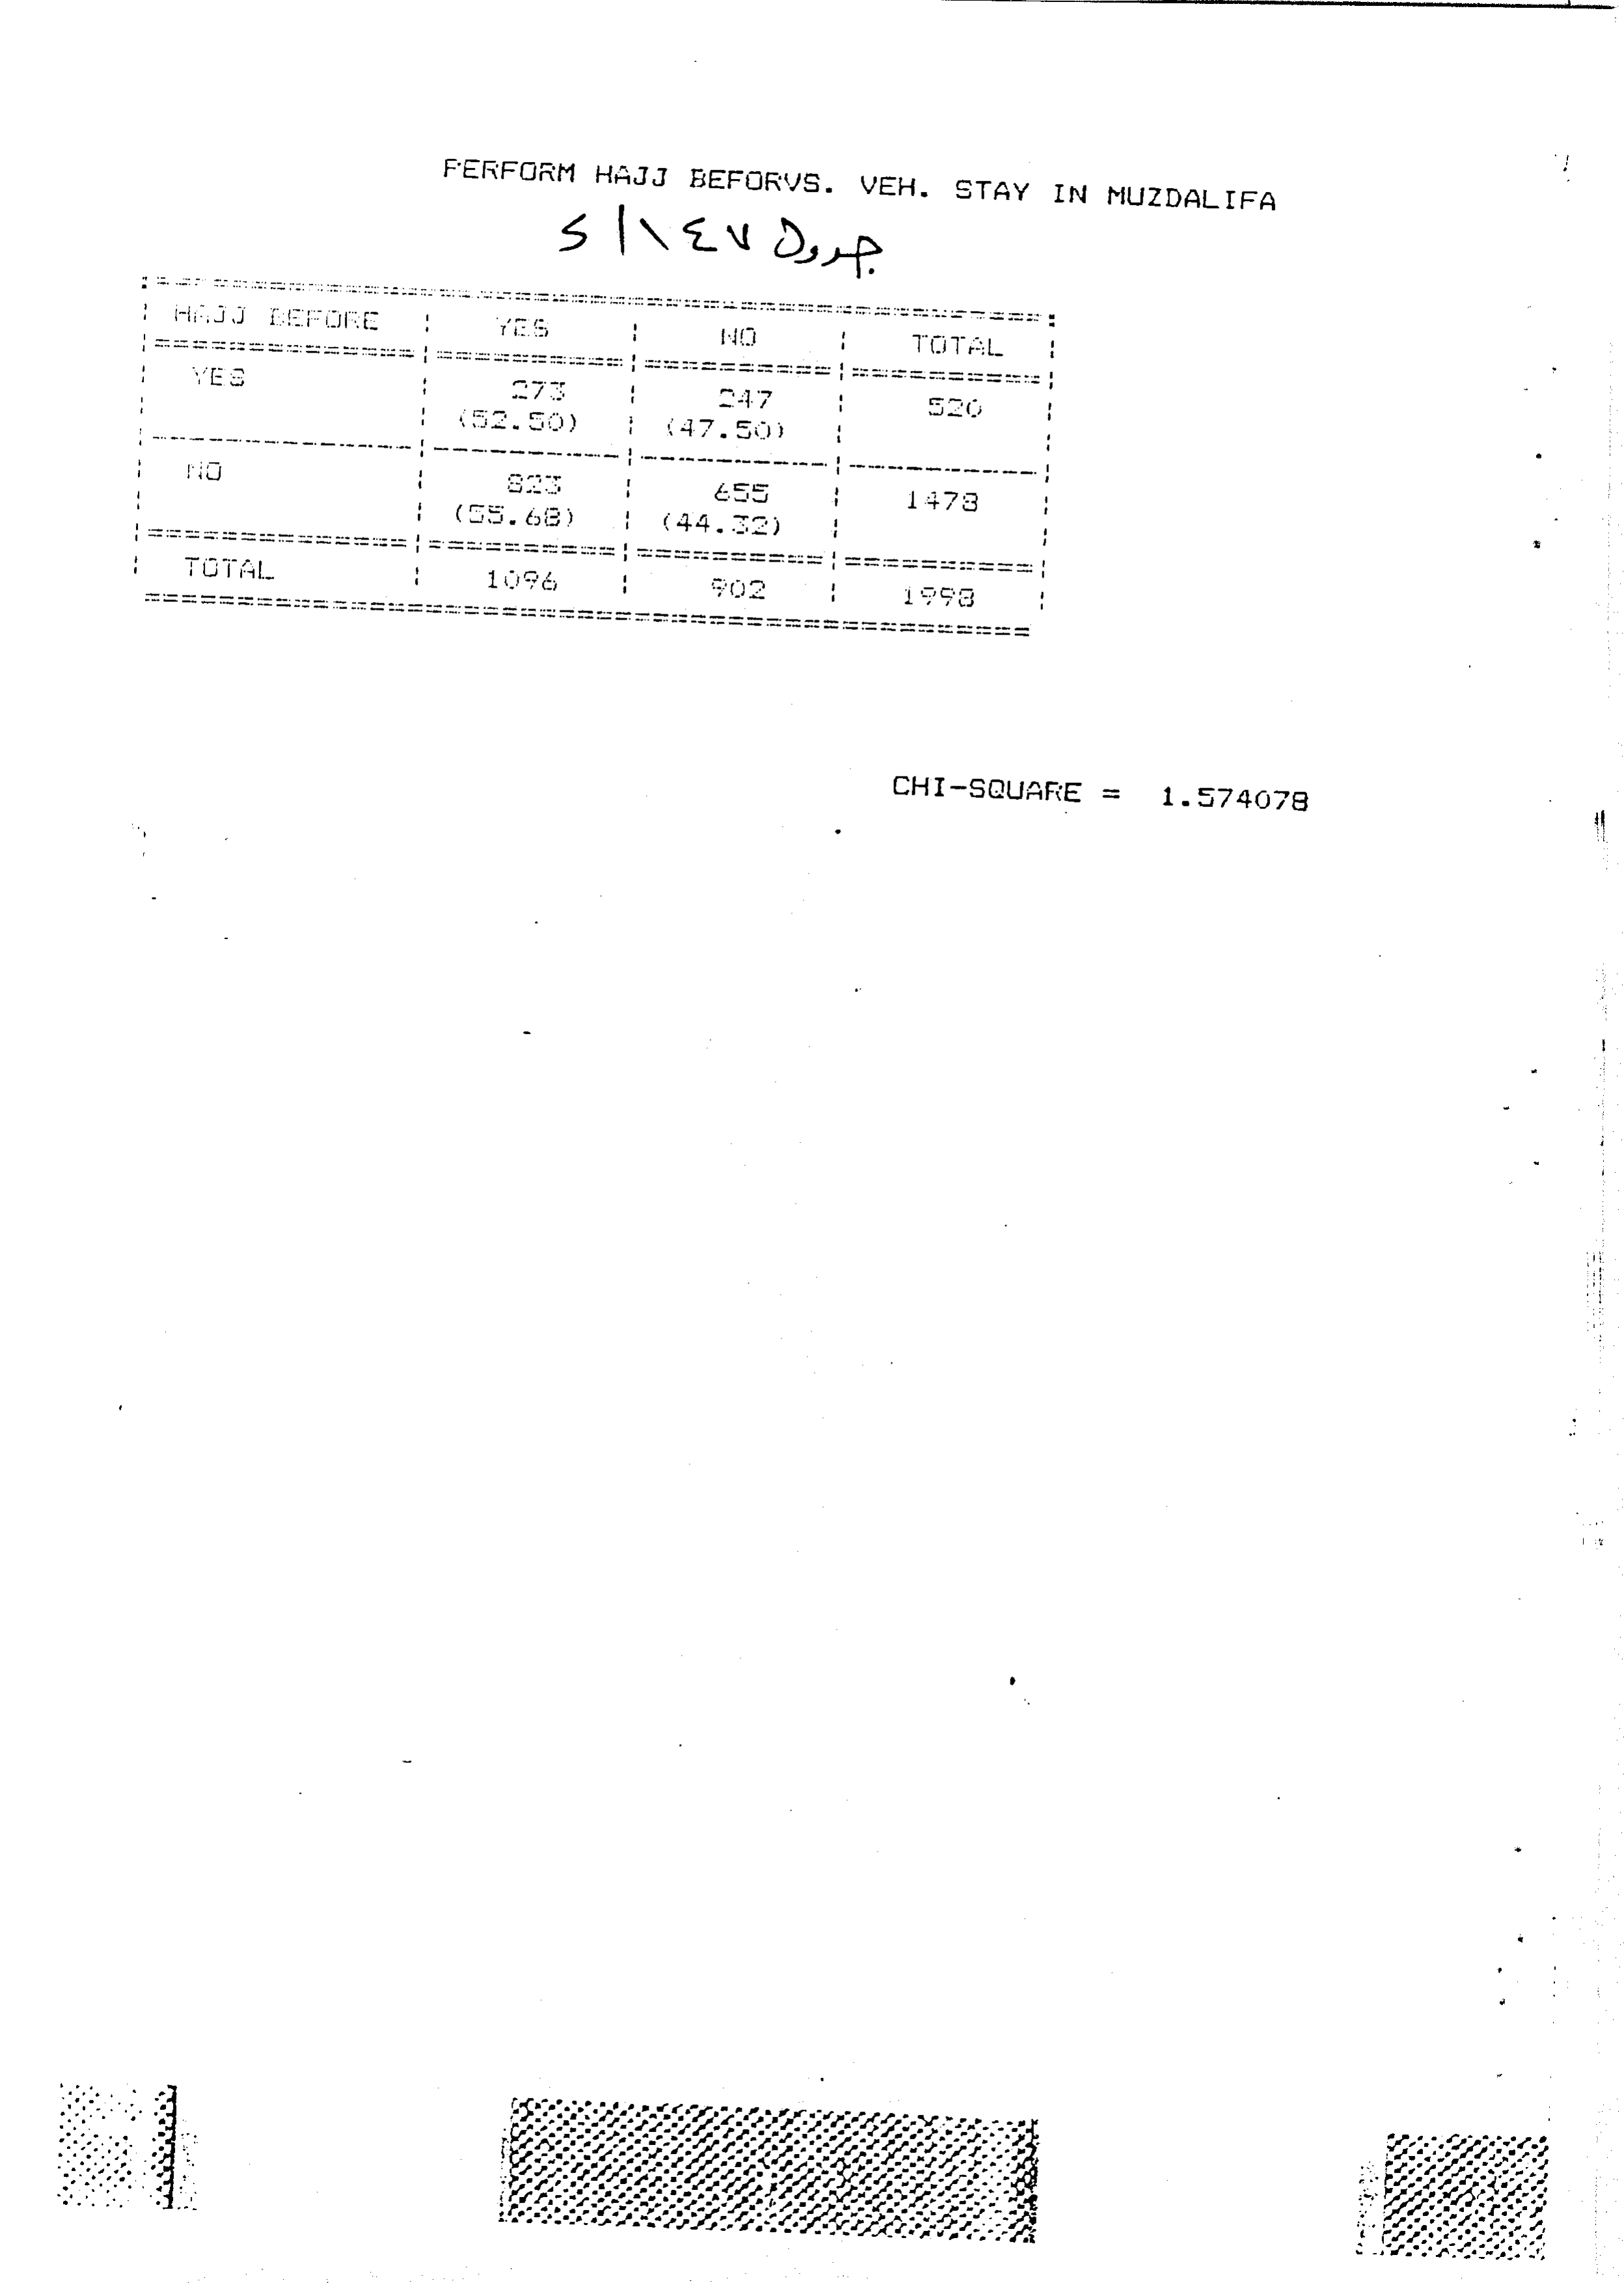 PERFORM HAJJ BEFORVS. VEH. STAY IN MUZDALIFA
جدول ١٤٧/٢
HAJJ BEFORE YES NO TOTAL
YES 273 247 520
(52.50) (47.50)
NO 823 655 1478
(55.68) (44.32)
TOTAL 1096 902 1998
CHI-SQUARE = 1.574078